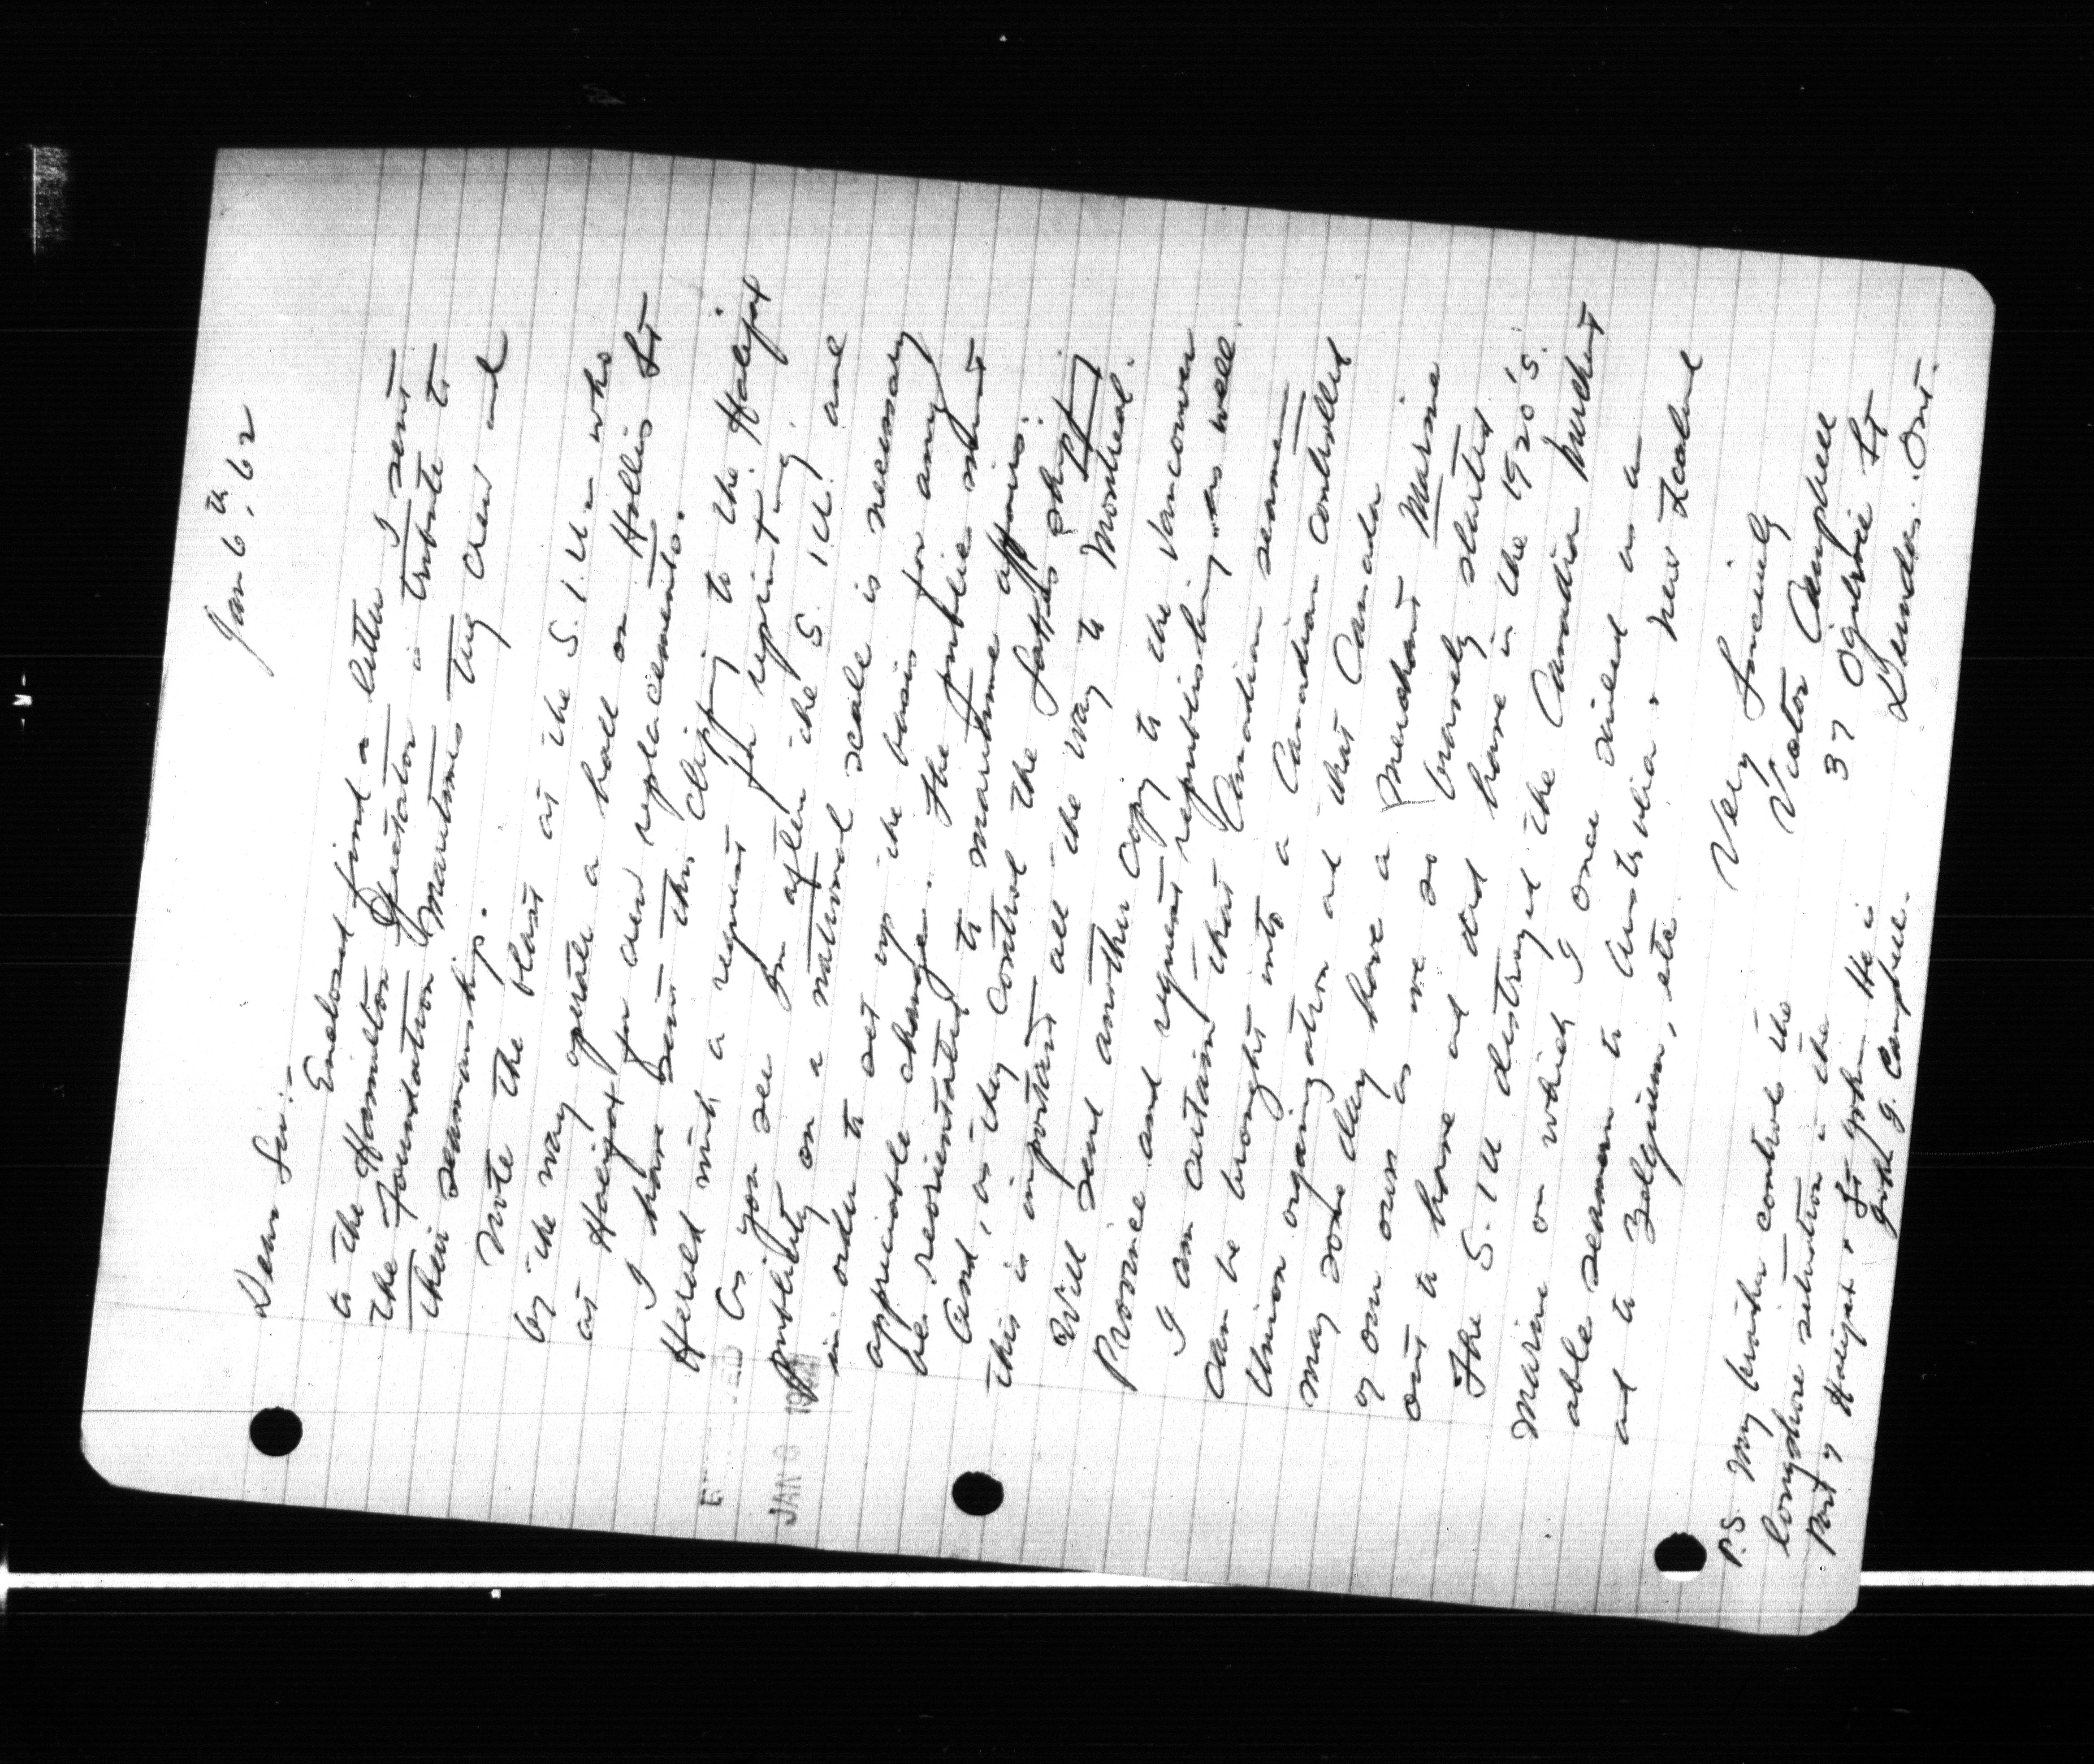 Jan 6th, 62
Dear Sir:-
Enclosed find a letter I sent
to the Hamilton Spectator in tribute to
the Foundation Maritimes tug crew and
their seamanship.
Note the blast at the S.I.U. who
by the way operate a hall on Hollis St
at Halifax for crew replacements.
I have sent this clipping to the Halifax
Herald with a request for reprinting.
As you see I'm after the S.I.U. and
publicity on a national scale is necessary
in order to set up the basis for any
appreciable change. The public must
be reorientated to maritime affairs.
And, as they control the shipping
this is important all the way to Montreal.
Will send another copy to the Vancouver
Province and request republishing as well.
I am certain that Canadian seamen
can be brought into a Canadian controlled
Union organization and that Canada
may some day have a Merchant Marine
of our own as we so bravely started
out to have and did have in the 1920's.
The S.I.U destroyed the Canadian Merchant
Marine on which I once sailed as an
able seaman to Australia & New Zealand
and to Belgium, etc.
Very Sincerely
Victor Campbell
37 Ogilvie St
Dundas. Ont.
P.S. My brother controls the
longshore situation in the
Port of Halifax & St John. He is
John J. Campbell.
JAN 8